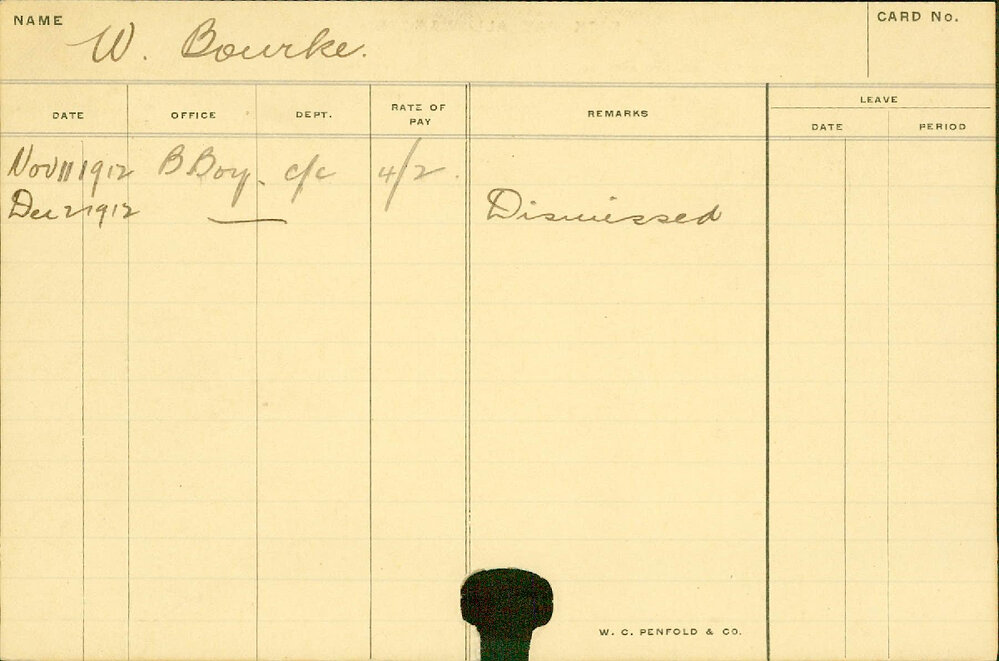 NAME W. Bourke. CARD No.
LEAVE
DATE OFFICE DEPT. RATE OF PAY REMARKS DATE PERIOD
Nov 11 1912 B Boy. c/c 4/2.
Dec 2 1912 — Dismissed
W. C. PENFOLD & CO.